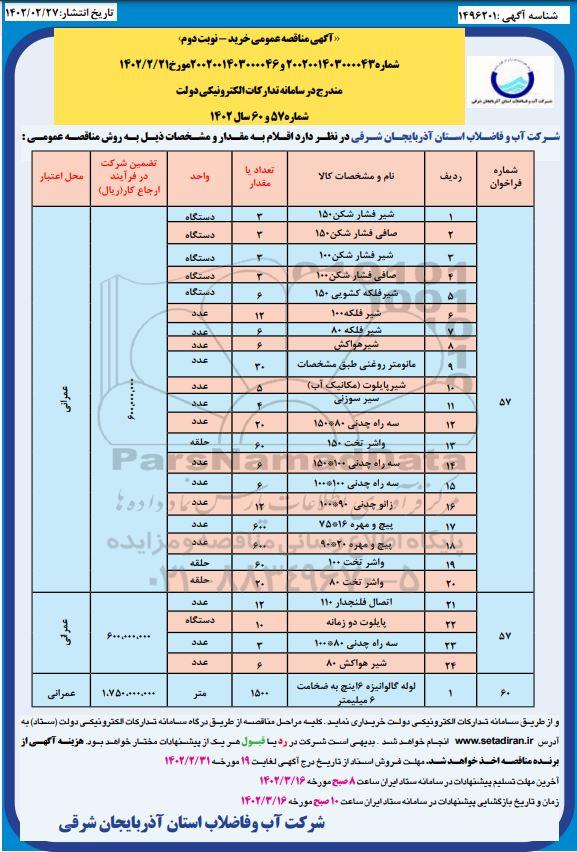 تاریخ انتشار: ۱۴۰۲/۰۲/۲۷
شناسه آگهی: ۱۴۹۶۲۰۱
«آگهی مناقصه عمومی خرید – نوبت دوم»
شماره ۲۰۰۲۰۰۱۴۰۳۰۰۰۰۴۳ و ۲۰۰۲۰۰۱۴۰۳۰۰۰۰۴۶ مورخ ۱۴۰۲/۲/۲۱
مندرج در سامانه تدارکات الکترونیکی دولت
شماره ۵۷ و ۶۰ سال ۱۴۰۲
شرکت آب و فاضلاب استان آذربایجان شرقی
شرکت آب و فاضلاب استان آذربایجان شرقی در نظر دارد اقلام به مقدار و مشخصات ذیل به روش مناقصه عمومی :
شماره فراخوان ردیف نام و مشخصات کالا تعداد یا مقدار واحد تضمین شرکت در فرآیند ارجاع کار(ریال) محل اعتبار
۵۷ ۶۰۰،۰۰۰،۰۰۰ عمرانی
۱ شیر فشار شکن۱۵۰ ۳ دستگاه
۲ صافی فشار شکن۱۵۰ ۳ دستگاه
۳ شیر فشار شکن۱۰۰ ۳ دستگاه
۴ صافی فشار شکن۱۰۰ ۳ دستگاه
۵ شیرفلکه کشویی ۱۵۰ ۶ دستگاه
۶ شیر فلکه۱۰۰ ۱۲ عدد
۷ شیر فلکه ۸۰ ۶ عدد
۸ شیرهواکش ۶ عدد
۹ مانومتر روغنی طبق مشخصات ۳۰ عدد
۱۰ شیرپایلوت (مکانیک آب) ۵ عدد
۱۱ سیر سوزنی ۴ عدد
۱۲ سه راه چدنی ۸۰*۱۵۰ ۲۰ عدد
۱۳ واشر تخت ۱۵۰ ۶۰ حلقه
۱۴ سه راه چدنی ۱۰۰*۱۵۰ ۶ عدد
۱۵ سه راه چدنی ۱۰۰*۱۰۰ ۶ عدد
۱۶ زانو چدنی ۹۰*۱۰۰ ۱۲ عدد
۱۷ پیچ و مهره ۱۶*۷۵ ۶۰۰ عدد
۱۸ پیچ و مهره ۲۰*۹۰ ۶۰۰ عدد
۱۹ واشر تخت ۱۰۰ ۶۰ حلقه
۲۰ واشر تخت ۸۰ ۲۰ حلقه
۵۷ ۶۰۰،۰۰۰،۰۰۰ عمرانی
۲۱ اتصال فلنجدار ۱۱۰ ۱۲ عدد
۲۲ پایلوت دو زمانه ۱۰ دستگاه
۲۳ سه راه چدنی ۸۰*۱۰۰ ۳ عدد
۲۴ شیر هواکش ۸۰ ۶ عدد
۶۰ ۱ لوله گالوانیزه ۱۶اینچ به ضخامت ۶ میلیمتر ۱۵۰۰ متر ۱،۷۵۰،۰۰۰،۰۰۰ عمرانی
و از طریق سامانه تدارکات الکترونیکی دولت خریداری نماید. کلیه مراحل مناقصه از طریق درگاه سامانه تدارکات الکترونیکی دولت (ستاد) به
آدرس www.setadiran.ir انجام خواهد شد . بدیهی است شرکت در رد یا قبول هر یک از پیشنهادات مختار خواهد بود. هزینه آگهی از
برنده مناقصه اخذ خواهد شد. مهلت فروش اسناد از تاریخ درج آگهی لغایت ۱۹ مورخه ۱۴۰۲/۲/۳۱
آخرین مهلت تسلیم پیشنهادات در سامانه ستاد ایران ساعت ۸ صبح مورخه ۱۴۰۲/۳/۱۶
زمان و تاریخ بازگشایی پیشنهادات در سامانه ستاد ایران ساعت ۱۰ صبح مورخه ۱۴۰۲/۳/۱۶
شرکت آب وفاضلاب استان آذربایجان شرقی
ParsNamadData
پایگاه اطلاع رسانی مناقصه و مزایده
۰۲۱-۸۸۳۴۹۶۷۰-۵